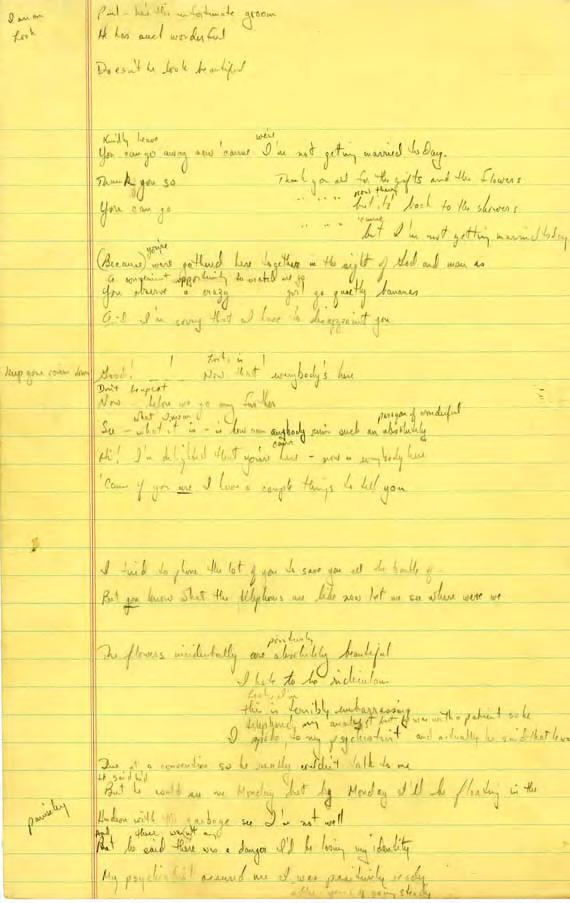 Paul - he's the unfortunate groom
look
He has such wonderful
Doesn't he look beautiful
Kindly leave we're
You can go away now 'cause I'm not getting married today.
Thank you so Thank you all for the gifts and the flowers
now they're
You can go but it's back to the showers
'cause
but I'm not getting married today
you're
(Because) we're gathered here together in the sight of God and man as
A convenient opportunity to watch me go
You observe a crazy girl go quietly bananas
And I'm sorry that I have to disappoint you
keep your down
Good! ! Look, is !
Now that everybody's here
Now - before we go any further
what I mean paragon of wonderful
See - what it is - is how can anybody such an absolutely
Hi! I'm delighted that you're here - now is everybody here
'Cause if you are I have a couple things to tell you
I tried to phone the lot of you to save you all the trouble of -
But you know what the telephones are like now let me see where were we
positively
The flowers incidentally are absolutely beautiful
I hate to be ridiculous
Look, I'm
this is terribly embarrassing
telephoned my analyst but he was with a patient so he
I spoke to my psychiatrist and actually he said that
at a convention so he really couldn't talk to me
He said he'd
But he would see me Monday but by Monday I'll be floating in the
Hudson with the garbage see I'm not well
And there wasn't any
But he said there was a danger I'd be losing my identity
My psychiatrist assured me I was positively ready
after years of going steady